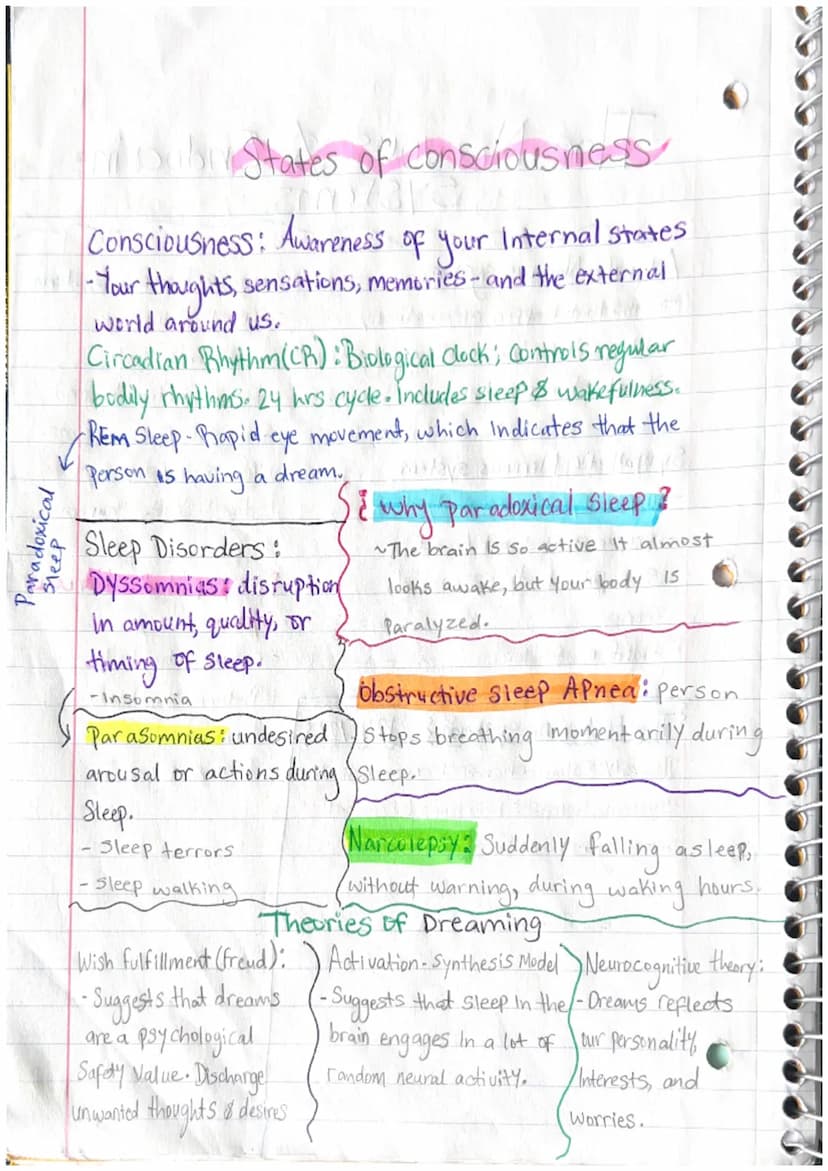 States of consciousness
Consciousness: Awareness of your Internal states
- Your thoughts, sensations, memories - and the external
world around us.
Circadian Rhythm(CR): Biological clock; controls regular
bodily rhythms. 24 hrs cycle. Includes sleep & wakefulness.
REM Sleep - Rapid eye movement, which indicates that the
person is having a dream.
Paradoxical
Sleep
Sleep Disorders:
Dyssomnias: disruption
in amount, quality, or
timing of sleep.
- Insomnia
Parasomnias: undesired
arousal or actions during
Sleep.
- Sleep terrors
- Sleep walking
Why Paradoxical Sleep?
~The brain is so active it almost
looks awake, but your body is
Paralyzed.
Obstructive Sleep Apnea: person
stops breathing momentarily during
Sleep.
Narcolepsy: Suddenly falling asleep,
without warning, during waking hours.
Theories of Dreaming
Wish fulfillment (freud):
- Suggests that dreams
are a psychological
Safety Value. Discharge
unwanted thoughts & desires
Activation-Synthesis Model
- Suggests that sleep in the
brain engages in a lot of
random neural activity.
Neurocognitive theory:
- Dreams reflects
our personality,
Interests, and
worries.